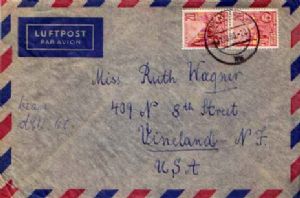 LUFTPOST
PAR AVION
Miss Ruth Wagner
409 N 8th Street
Vineland N.J.
USA